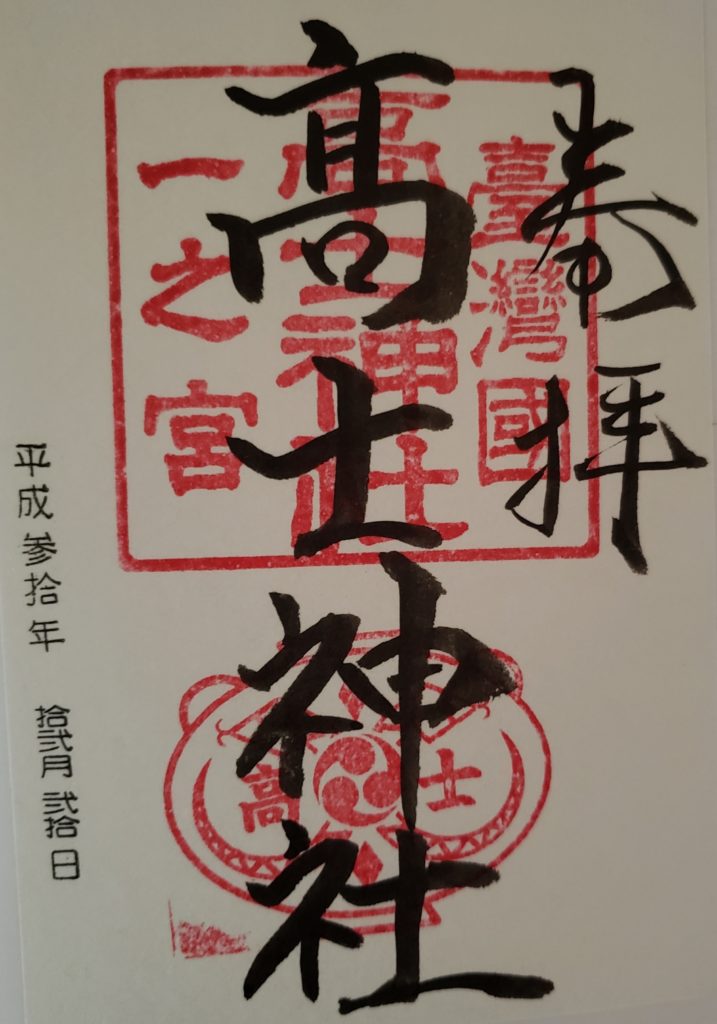 奉拝
臺灣國
高士神社
一之宮
高士神社
高 士
平成参拾年 拾弐月 弐拾日